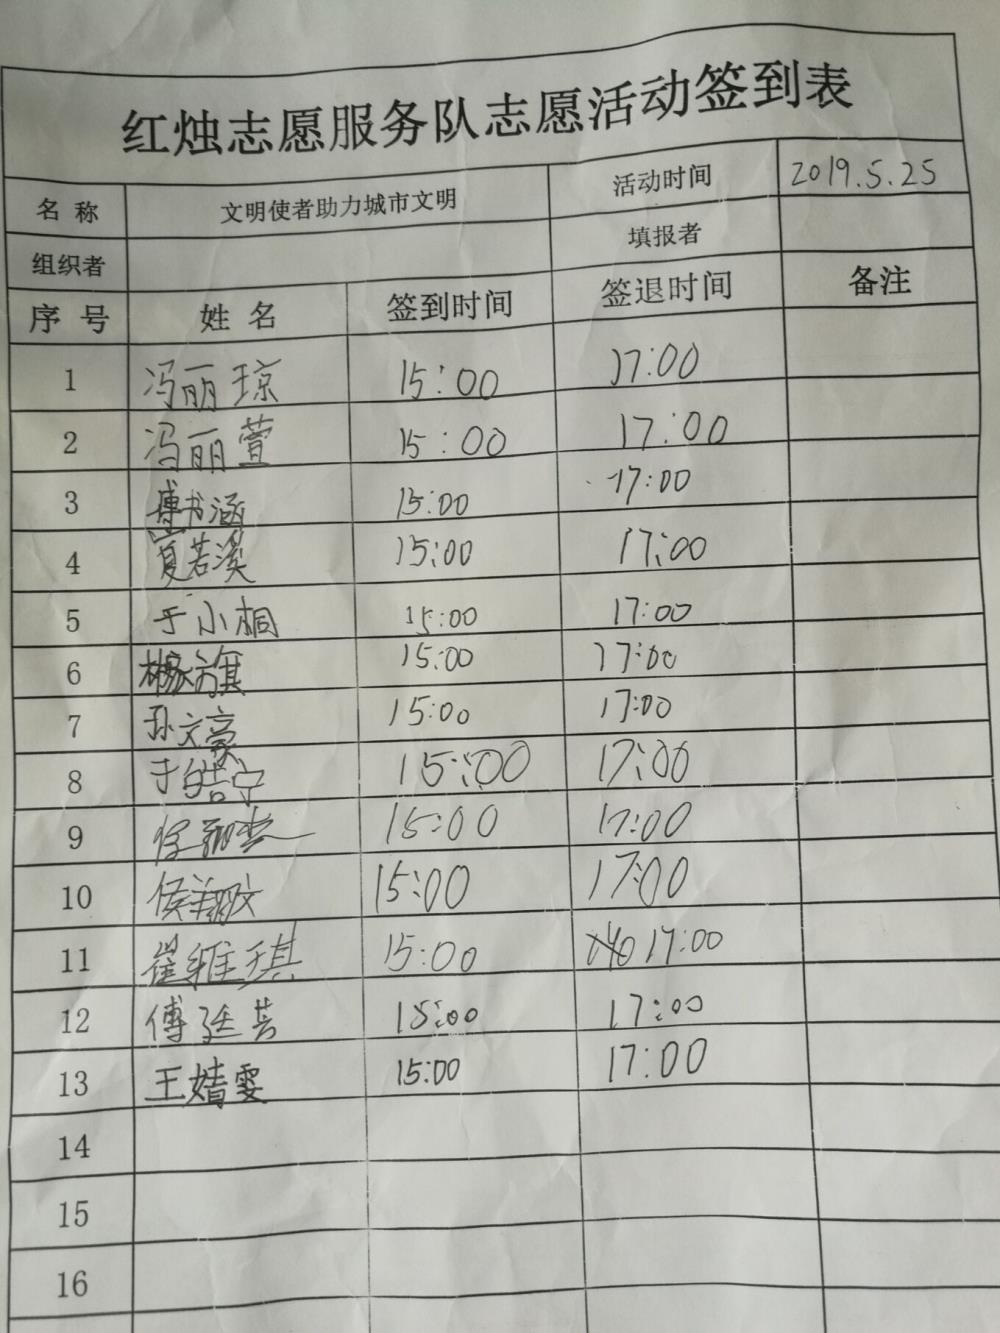 红烛志愿服务队志愿活动签到表
名 称 文明使者助力城市文明 活动时间 2019.5.25
组织者 填报者
序 号 姓 名 签到时间 签退时间 备注
1 冯丽琼 15:00 17:00
2 冯丽萱 15:00 17:00
3 书涵 15:00 17:00
4 夏若溪 15:00 17:00
5 于小桐 15:00 17:00
6 15:00 17:00
7 孙文豪 15:00 17:00
8 于皓宁 15:00 17:00
9 15:00 17:00
10 侯翔 15:00 17:00
11 崔雅琪 15:00 17:00
12 傅廷 15:00 17:00
13 王婧雯 15:00 17:00
14
15
16